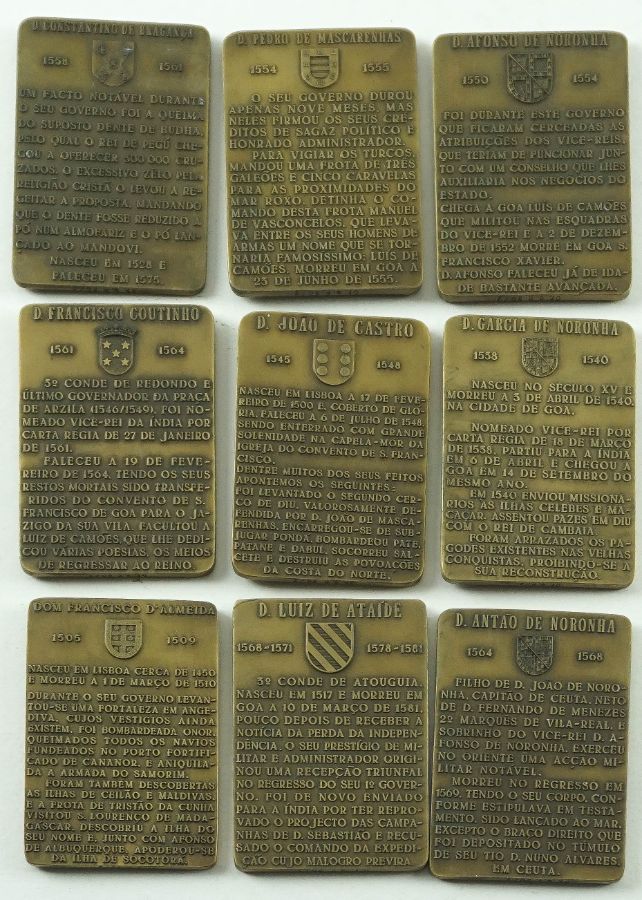 D. CONSTANTINO DE BRAGANÇA
1558 1561
UM FACTO NOTÁVEL DURANTE
O SEU GOVERNO FOI A QUEIMA
DO SUPOSTO DENTE DE BUDHA,
PELO QUAL O REI DE PEGÚ CHE-
GOU A OFERECER 300.000 CRU-
ZADOS. O EXCESSIVO ZELO PELA
RELIGIÃO CRISTÃ O LEVOU A RE-
GEITAR A PROPOSTA, MANDANDO
QUE O DENTE FOSSE REDUZIDO A
PÓ NUM ALMOFARIZ E O PÓ LAN-
ÇADO AO MANDOVI.
NASCEU EM 1528 E
FALECEU EM 1575.
D. PEDRO DE MASCARENHAS
1554 1555
O SEU GOVERNO DUROU
APENAS NOVE MESES, MAS
NELES FIRMOU OS SEUS CRÉ-
DITOS DE SAGAZ POLÍTICO E
HONRADO ADMINISTRADOR.
PARA VIGIAR OS TURCOS,
MANDOU UMA FROTA DE TRÊS
GALEÕES E CINCO CARAVELAS
PARA AS PROXIMIDADES DO
MAR ROXO. DETINHA O CO-
MANDO DESTA FROTA MANUEL
DE VASCONCELOS, QUE LEVA-
VA ENTRE OS SEUS HOMENS DE
ARMAS UM NOME QUE SE TOR-
NARIA FAMOSISSIMO: LUIS DE
CAMÕES. MORREU EM GOA A
23 DE JUNHO DE 1555.
D. AFONSO DE NORONHA
1550 1554
FOI DURANTE ESTE GOVERNO
QUE FICARAM CERCEADAS AS
ATRIBUIÇÕES DOS VICE-REIS,
QUE TERIAM DE FUNCIONAR JUN-
TO COM UM CONSELHO QUE LHES
AUXILIARIA NOS NEGÓCIOS DO
ESTADO.
CHEGA A GOA LUIS DE CAMÕES
QUE MILITOU NAS ESQUADRAS
DO VICE-REI E A 2 DE DEZEM-
BRO DE 1552 MORRE EM GOA S.
FRANCISCO XAVIER.
D. AFONSO FALECEU JÁ DE IDA-
DE BASTANTE AVANÇADA.
D. FRANCISCO COUTINHO
1561 1564
3º CONDE DE REDONDO E
ÚLTIMO GOVERNADOR DA PRAÇA
DE ARZILA (1546/1549), FOI NO-
MEADO VICE-REI DA ÍNDIA POR
CARTA RÉGIA DE 27 DE JANEIRO
DE 1561.
FALECEU A 19 DE FEVE-
REIRO DE 1564, TENDO OS SEUS
RESTOS MORTAIS SIDO TRANSFE-
RIDOS DO CONVENTO DE S.
FRANCISCO DE GOA PARA O JA-
ZIGO DA SUA VILA. FACULTOU A
LUIZ DE CAMÕES, QUE LHE DEDI-
COU VÁRIAS POESIAS, OS MEIOS
DE REGRESSAR AO REINO.
D. JOÃO DE CASTRO
1545 1548
NASCEU EM LISBOA A 17 DE FEVE-
REIRO DE 1500 E, COBERTO DE GLÓ-
RIA, FALECEU A 6 DE JULHO DE 1548,
SENDO ENTERRADO COM GRANDE
SOLENIDADE NA CAPELA-MOR DA
IGREJA DO CONVENTO DE S. FRAN-
CISCO.
DENTRE MUITOS DOS SEUS FEITOS
APONTEMOS OS SEGUINTES:
FOI LEVANTADO O SEGUNDO CER-
CO DE DIU, VALOROSAMENTE DE-
FENDIDA POR D. JOÃO DE MASCA-
RENHAS, ENCARREGOU-SE DE SUB-
JUGAR PONDÁ, BOMBARDEOU PATE,
PATANE E DABUL, SOCORREU SAL-
CETE E DESTRUIU AS POVOAÇÕES
DA COSTA DO NORTE.
D. GARCIA DE NORONHA
1538 1540
NASCEU NO SÉCULO XV E
MORREU A 3 DE ABRIL DE 1540,
NA CIDADE DE GOA.
NOMEADO VICE-REI POR
CARTA RÉGIA DE 18 DE MARÇO
DE 1538, PARTIU PARA A ÍNDIA
EM 6 DE ABRIL E CHEGOU A
GOA EM 14 DE SETEMBRO DO
MESMO ANO.
EM 1540 ENVIOU MISSIONÁ-
RIOS ÀS ILHAS CELEBES E MA-
CAÇAR, ASSENTOU PAZES EM DIU
COM O REI DE CAMBAIA.
FORAM ARRAZADOS OS PA-
GODES EXISTENTES NAS VELHAS
CONQUISTAS, PROIBINDO-SE A
SUA RECONSTRUÇÃO.
DOM FRANCISCO D'ALMEIDA
1505 1509
NASCEU EM LISBOA CERCA DE 1450
E MORREU A 1 DE MARÇO DE 1510
DURANTE O SEU GOVERNO LEVAN-
TOU-SE UMA FORTALEZA EM ANGE-
DIVA, CUJOS VESTÍGIOS AINDA
EXISTEM, FOI BOMBARDEADA ONOR,
QUEIMADOS TODOS OS NAVIOS
FUNDEADOS NO PORTO FORTIFI-
CADO DE CANANOR, E ANIQUILA-
DA A ARMADA DO SAMORIM.
FORAM TAMBÉM DESCOBERTAS
AS ILHAS DE CEILÃO E MALDIVAS
E A FROTA DE TRISTÃO DA CUNHA
VISITOU S. LOURENÇO DE MADA-
GÁSCAR, DESCOBRIU A ILHA DO
SEU NOME E, JUNTO COM AFONSO
DE ALBUQUERQUE, APODEROU-SE
DA ILHA DE SOCOTORÁ.
D. LUIZ DE ATAÍDE
1568-1571 1578-1581
3º CONDE DE ATOUGUIA,
NASCEU EM 1517 E MORREU EM
GOA A 10 DE MARÇO DE 1581,
POUCO DEPOIS DE RECEBER A
NOTÍCIA DA PERDA DA INDEPEN-
DÊNCIA. O SEU PRESTÍGIO DE MI-
LITAR E ADMINISTRADOR ORIGI-
NOU UMA RECEPÇÃO TRIUNFAL
NO REGRESSO DO SEU 1º GOVER-
NO. FOI DE NOVO ENVIADO
PARA A ÍNDIA POR TER REPRO-
VADO O PROJECTO DAS CAMPA-
NHAS DE D. SEBASTIÃO E RECU-
SADO O COMANDO DA EXPEDI-
ÇÃO CUJO MALOGRO PREVIRA
D. ANTÃO DE NORONHA
1564 1568
FILHO DE D. JOÃO DE NORO-
NHA, CAPITÃO DE CEUTA, NETO
DE D. FERNANDO DE MENEZES
2º MARQUÊS DE VILA-REAL, E
SOBRINHO DO VICE-REI D. A-
FONSO DE NORONHA, EXERCEU
NO ORIENTE UMA ACÇÃO MI-
LITAR NOTÁVEL.
MORREU, NO REGRESSO EM
1569, TENDO O SEU CORPO, CON-
FORME ESTIPULAVA EM TESTA-
MENTO, SIDO LANÇADO AO MAR,
EXCEPTO O BRAÇO DIREITO QUE
FOI DEPOSITADO NO TÚMULO
DE SEU TIO D. NUNO ÁLVARES,
EM CEUTA.